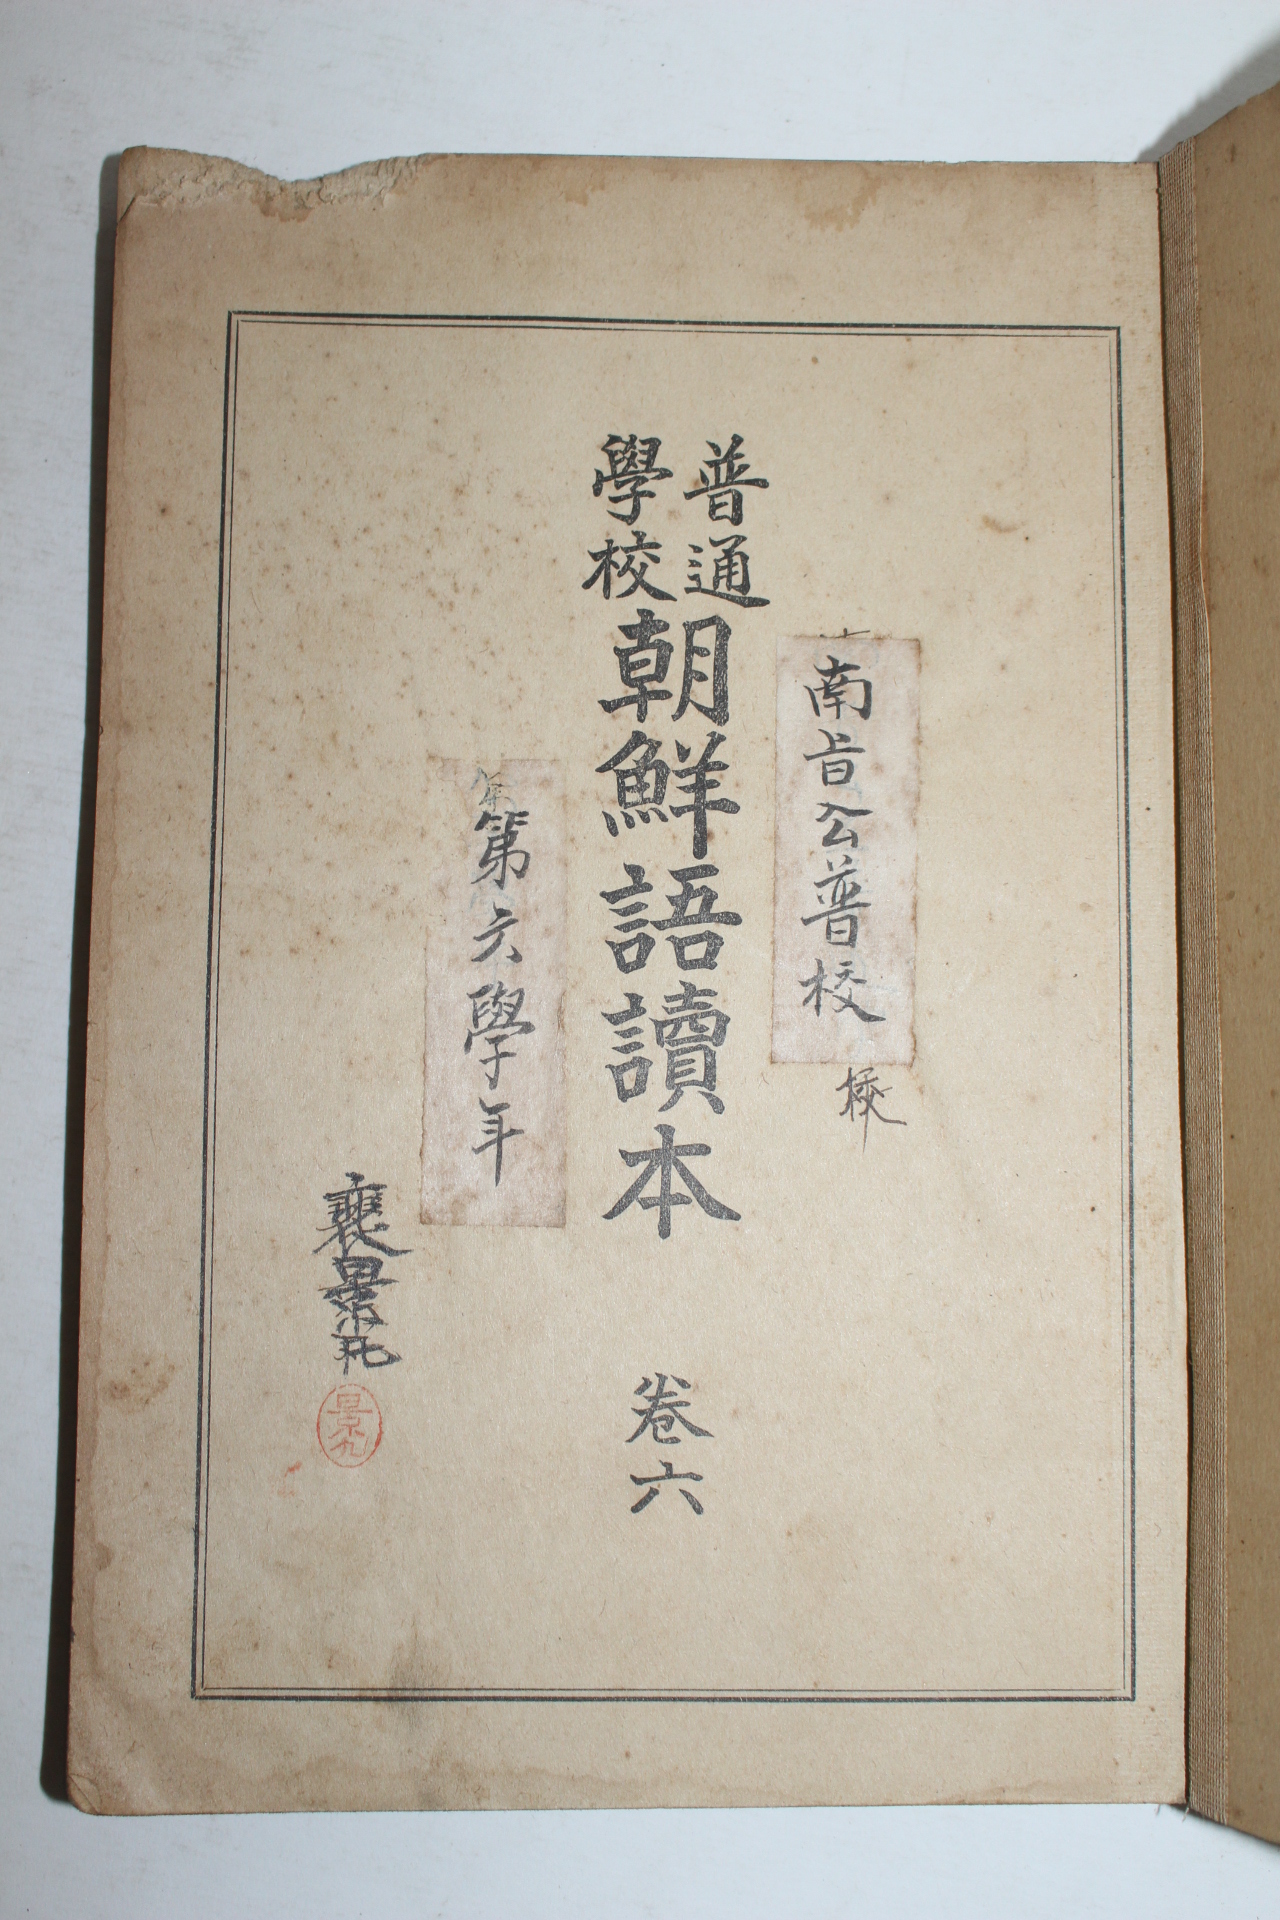 南旨公普校
校
普通
學校
朝鮮語讀本 卷六
第六學年
裵景
景九